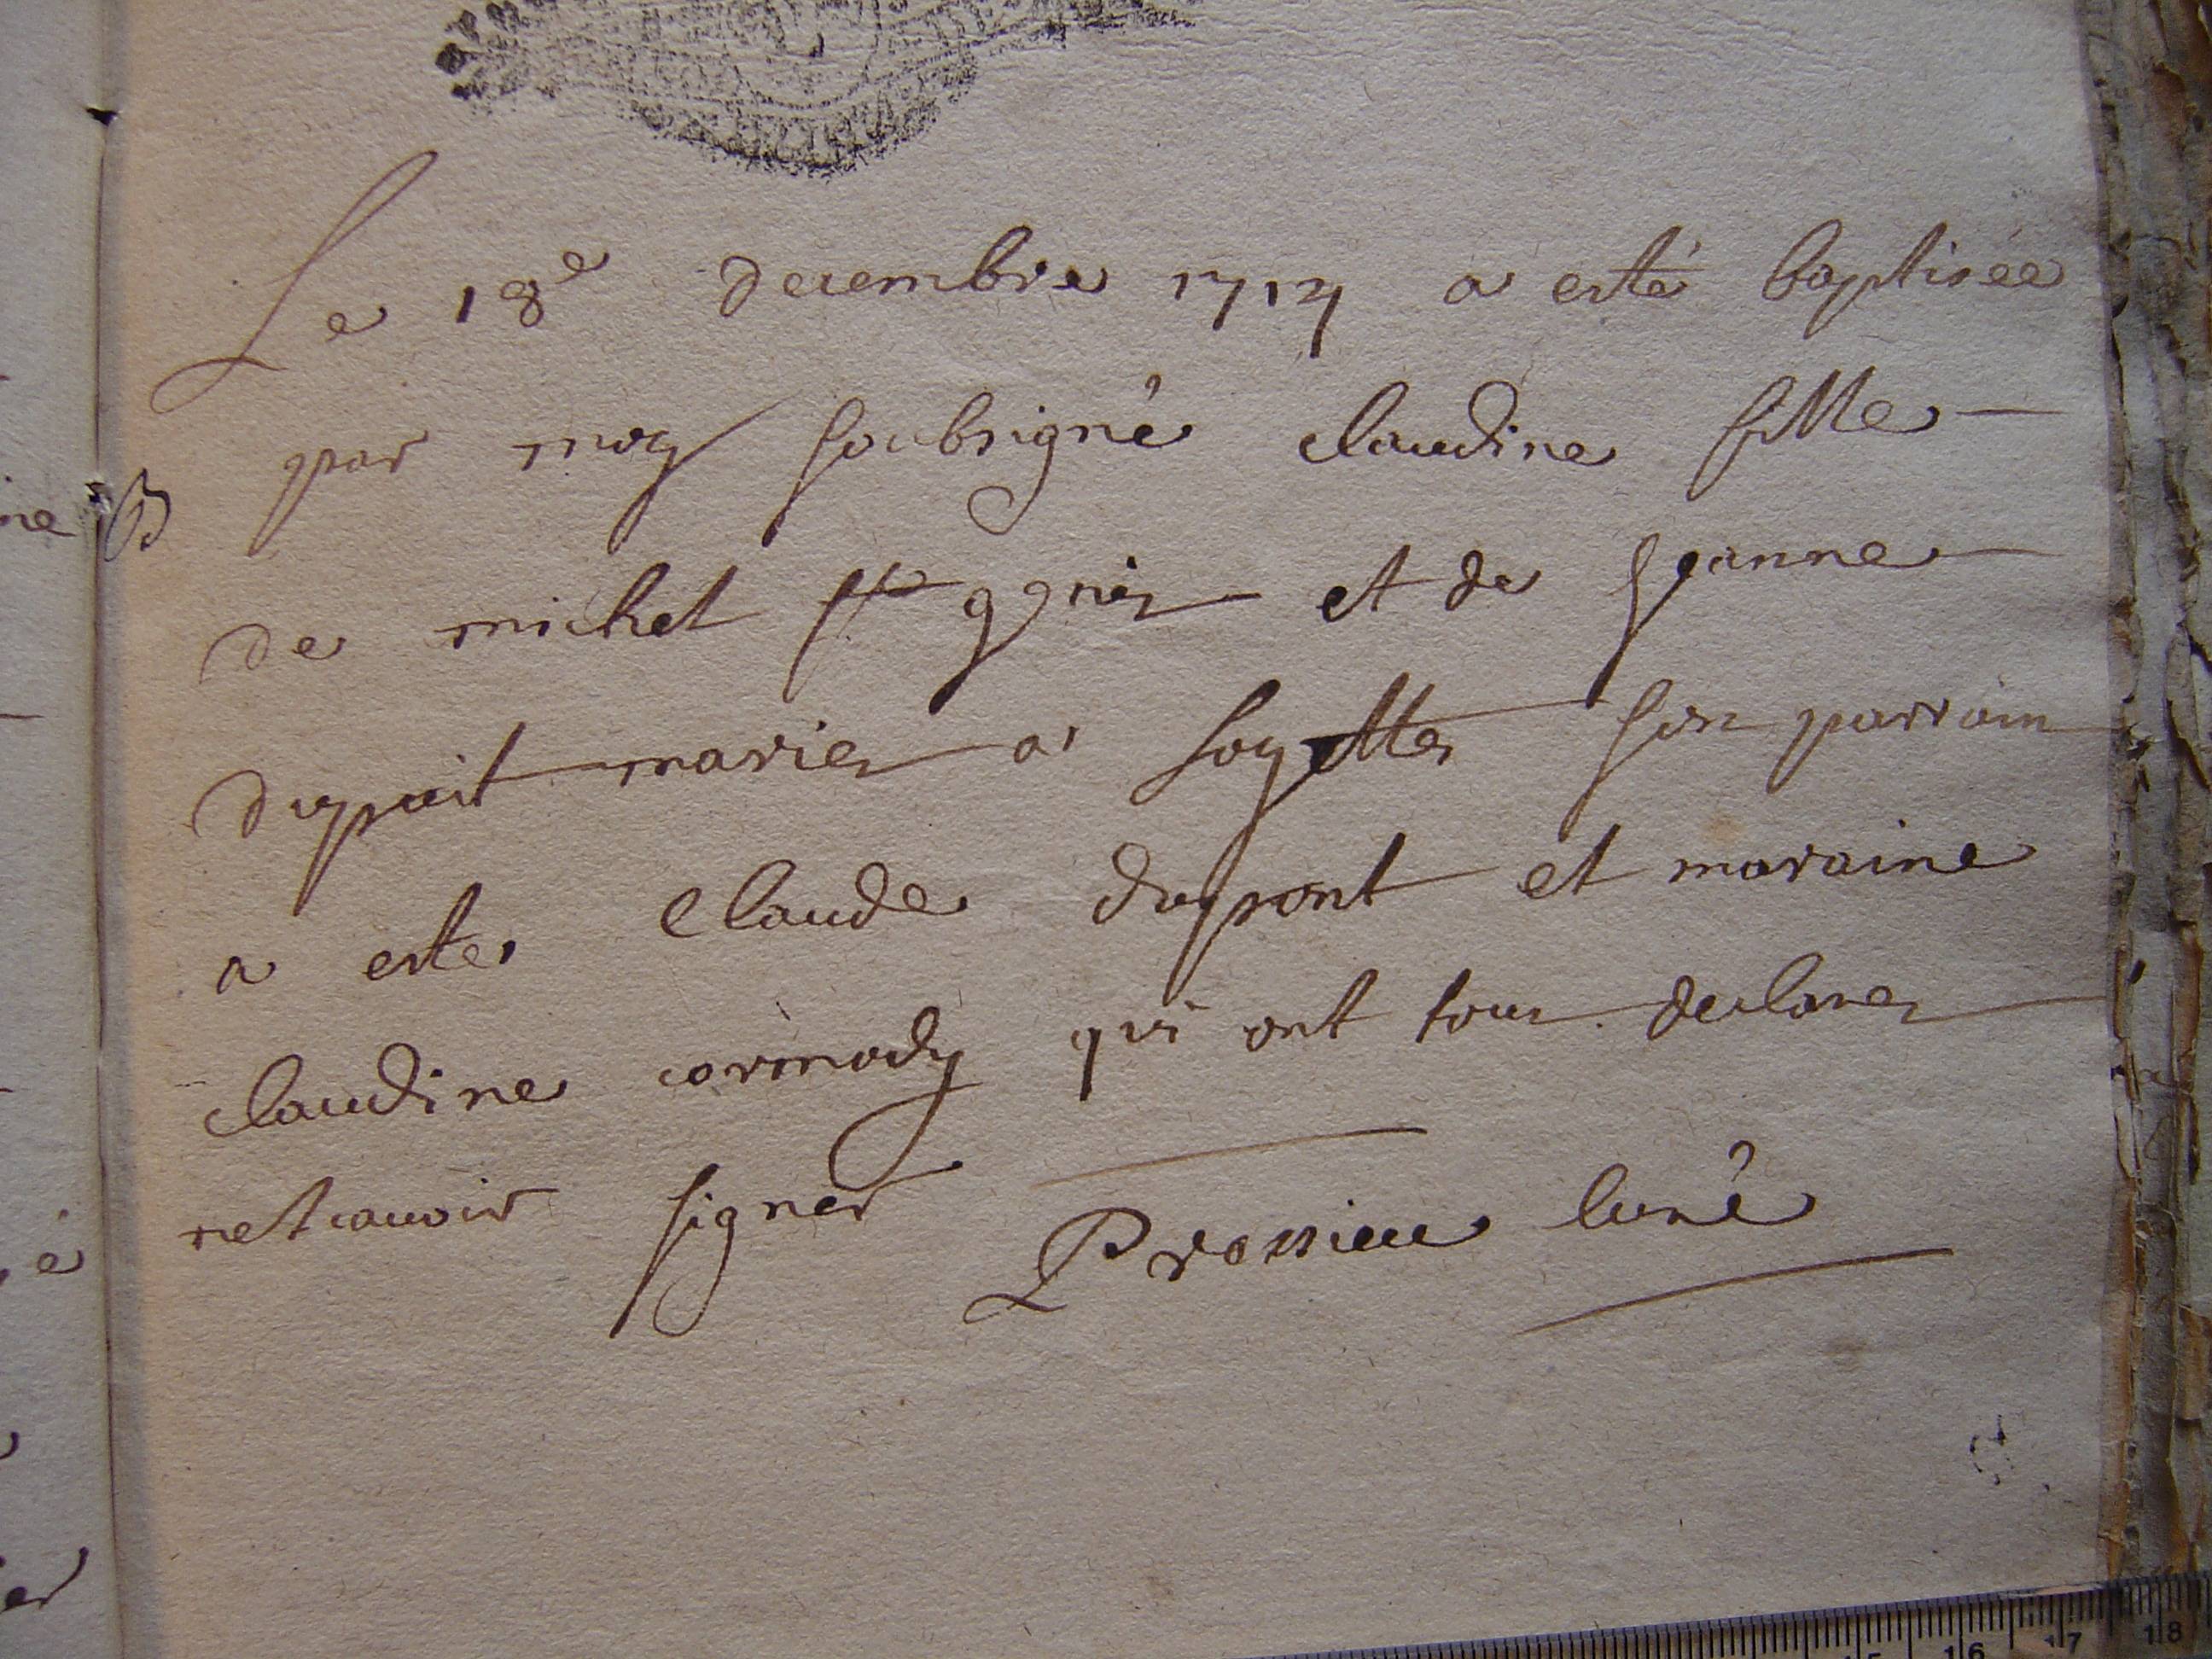 Le 18e decembre 1714 a esté baptisée
B par moy soubsigné claudine fille
de michel et de Jeanne
dupuit maries a Soyette son parrain
a este claude dupont et maraine
claudine cormody qui ont tous declares
ne scavoir signer
Prossieu Curé
ne
é
er
15 16 17 18